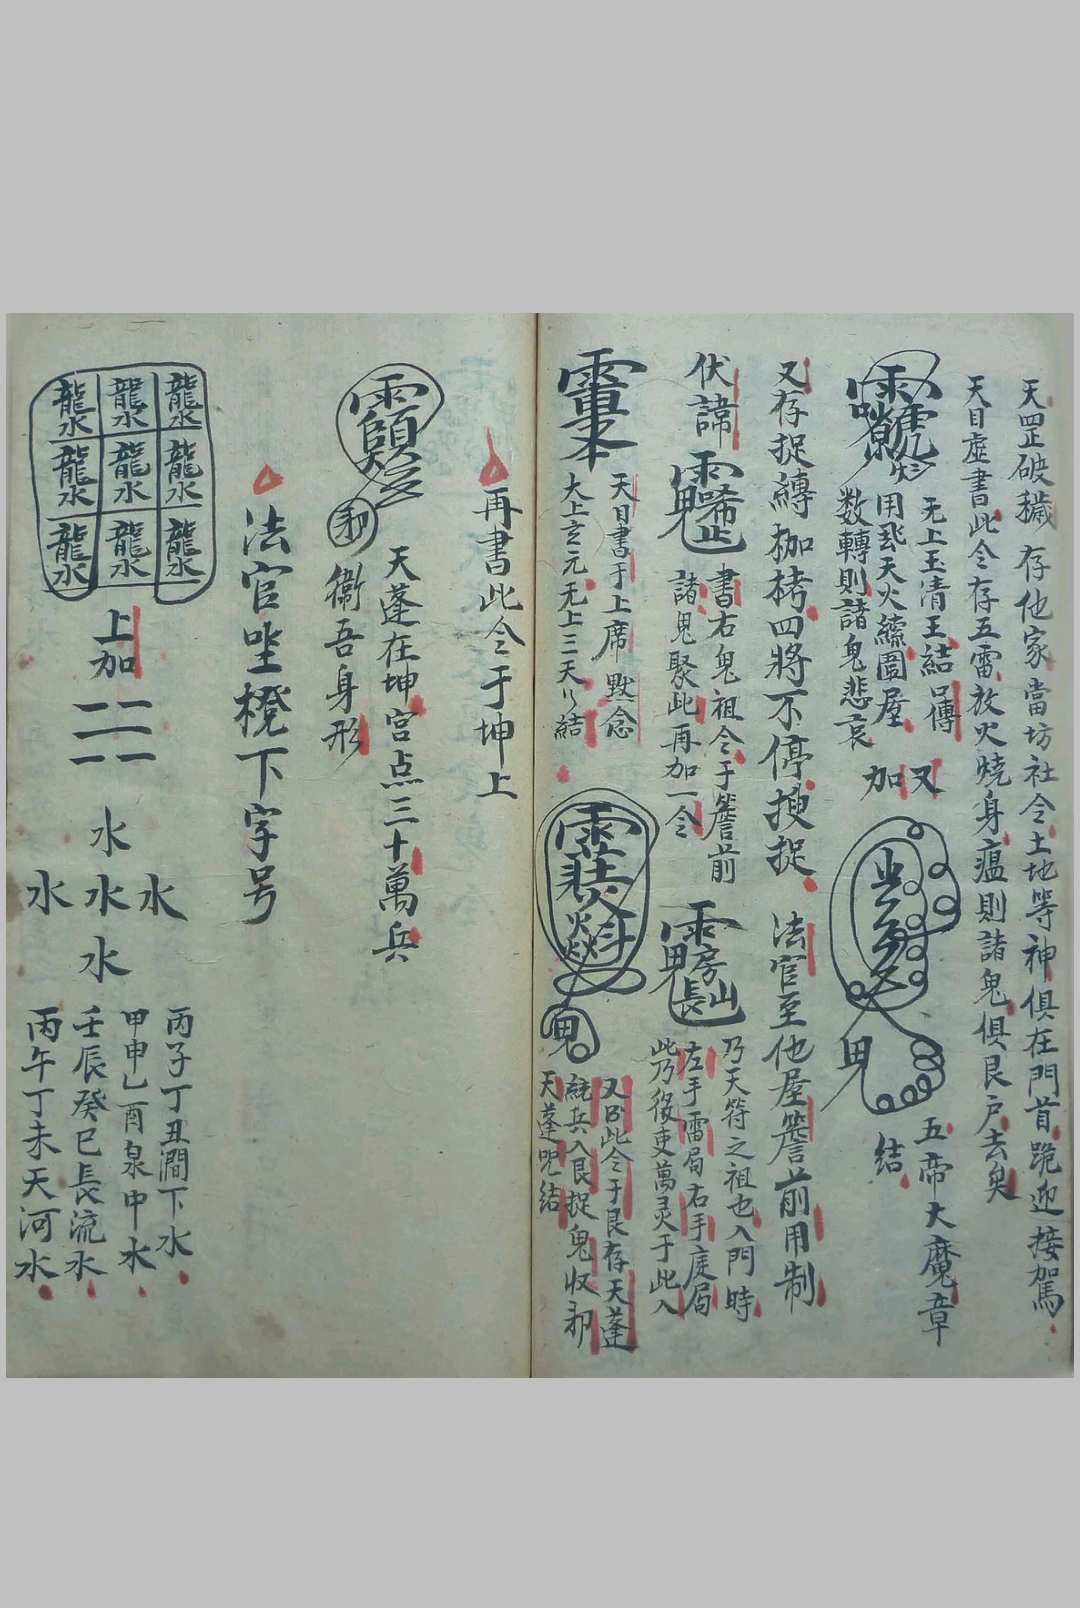 天罡破穢 存他家當坊社令土地等神俱在門首跪迎接駕
天目虛書此令存五雷放火燒身瘟則諸鬼俱艮户去矣
无上玉清王結呂傳
用飛天火繞圍屋
数轉則諸鬼悲哀
又
加
五帝大魔章
結
又存捉縛枷栲四將不停搜捉 法官至他屋簷前用制
伏諱
書右鬼祖令于簷前
諸鬼聚此再加一令
乃天符之祖也入門時
左手雷局右手庭局
此乃後吏萬灵于此入
天目書于上席默念
太上玄元无上三天々結
又此令于艮存天蓬
統兵入艮捉鬼收
天蓬咒結
再書此令于坤上
天蓬在坤宮点三十萬兵
衛吾身形
法官坐櫈下字号
龍水 龍水 龍水
龍水 龍水 龍水
龍水 龍水 龍水
上加
水
水 水 水
水
丙子丁丑澗下水
甲申乙酉泉中水
壬辰癸巳長流水
丙午丁未天河水